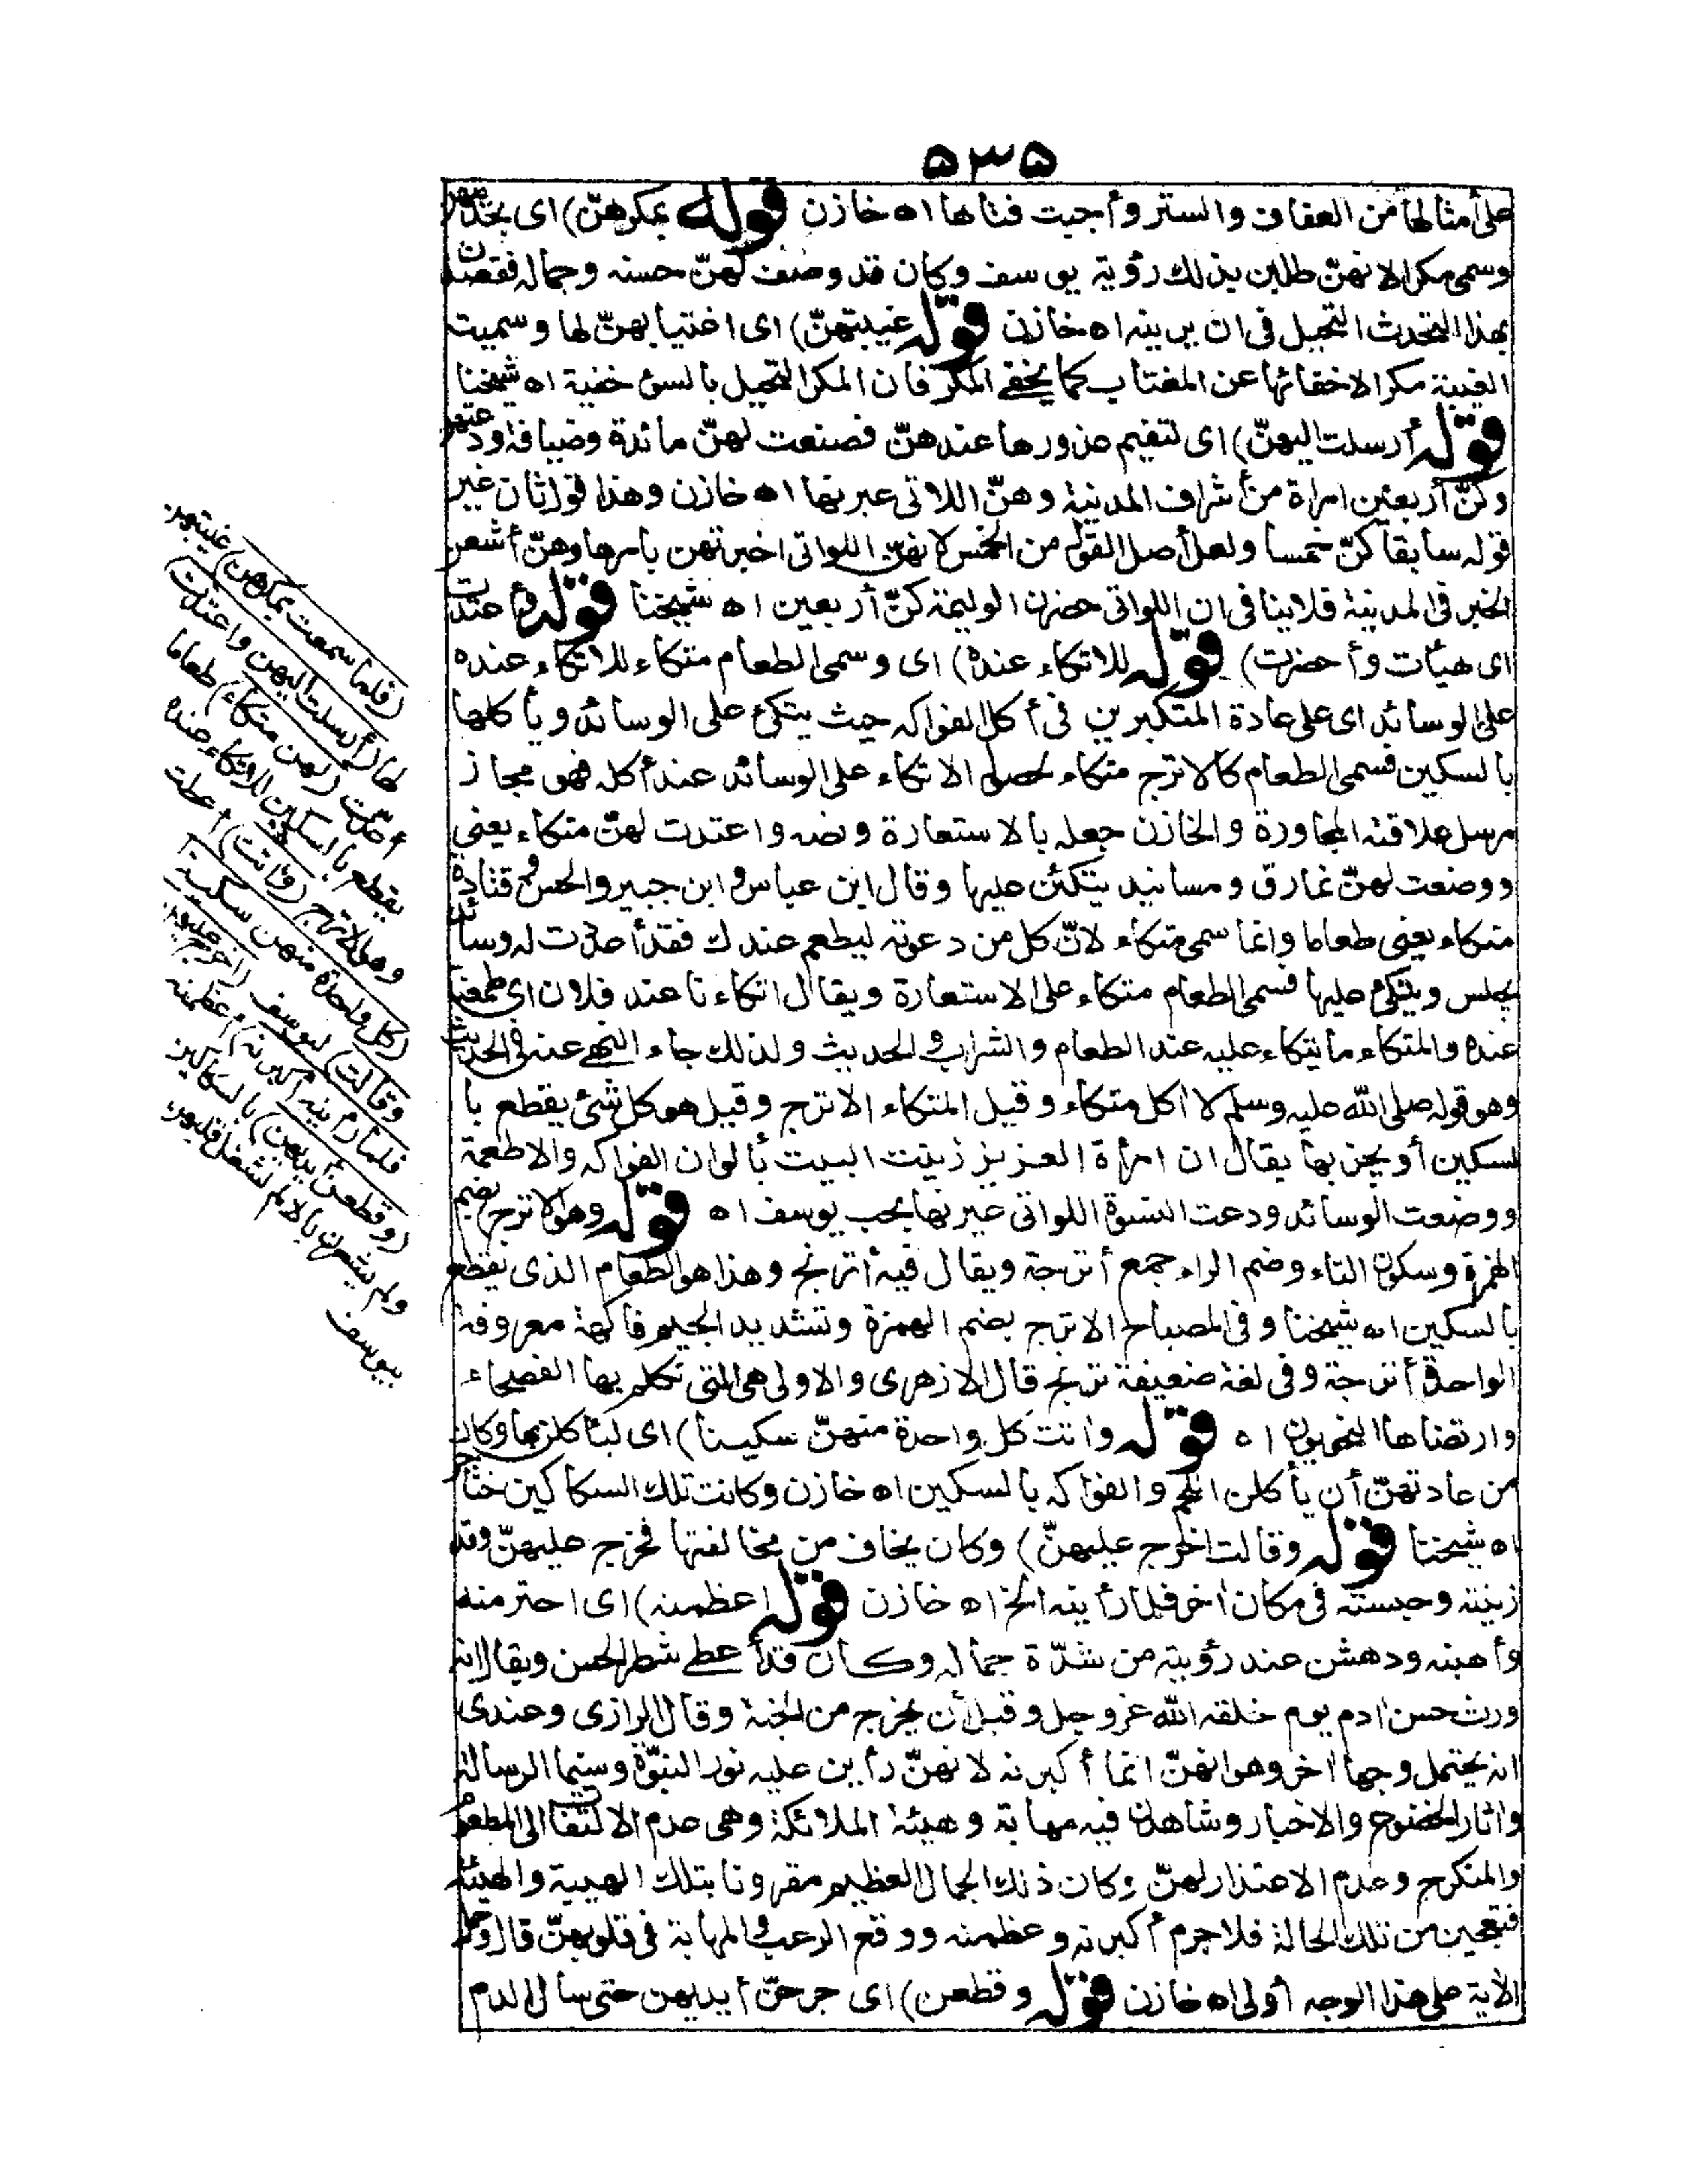 ٥٣٥
على أمثالها من العفاف والستر وأحبت فتاها اه خازن قوله بمكرهنّ) اى بحديثهن
وسمى مكرا لانهنّ طلبن بذلك رؤية يوسف وكان قد وصف لهنّ حسنه وجماله فقصدن
بهذا التحدث التحيل فى ان يرينه اه خازن قوله غيبتهنّ) اى اغتيابهنّ لها وسميت
الغيبة مكرا لاخفائها عن المغتاب كما يخفى المكر فان المكر التحيل بالسوء خفية اه شيخنا
قوله أرسلت اليهنّ) اى لتقيم عذورها عندهنّ فصنعت لهنّ مائدة وضيافة ودعتهن
وكنّ أربعين امرأة من أشراف المدينة وهنّ اللاتى عيرنها اه خازن وهذا قول ثان غير
قوله سابقا كنّ خمسا ولعل أصل القول من الخمس لانهنّ اللواتى اخبرتهن بامرها وهنّ أشعر
الخبر فى المدينة فلا ينافى ان اللواتى حضرن الوليمة كنّ أربعين اه شيخنا قوله وأعتدت
اى هيأت وأحضرت) قوله للاتكاء عنده) اى وسمى الطعام متكاء للاتكاء عنده
على الوسائد اى على عادة المتكبرين فى أكل الفواكه حيث يتكئ على الوسائد ويأكلها
بالسكين فسمى الطعام كالاترج متكاء لحصول الاتكاء على الوسائد عند أكله فهو مجاز
مرسل علاقته المجاورة والخازن جعله بالاستعارة ونصه واعتدت لهنّ متكاء يعنى
ووضعت لهنّ نمارق ومسانيد يتكئن عليها وقال ابن عباس وابن جبير والحسن وقتادة
متكاء يعنى طعاما وانما سمى متكاء لانّ كل من دعوته ليطعم عندك فقد أعددت له وسائد
يجلس ويتكئ عليها فسمى الطعام متكاء على الاستعارة ويقال اتكاء نا عند فلان اى طعمنا
عنده والمتكاء ما يتكاء عليه عند الطعام والشراب والحديث ولذلك جاء النهى عنه فى الحديث
وهو قوله صلى الله عليه وسلم لا اكل متكاء وقيل المتكاء الاترج وقيل هو كل شئ يقطع با
لسكين أو يحز بها يقال ان امرأة العزيز زينت البيت بألوان الفواكه والاطعمة
ووضعت الوسائد ودعت النسوة اللواتى عيرنها بحب يوسف اه قوله وهو الاترج) بضم
الهمزة وسكون التاء وضم الراء جمع أترجة ويقال فيه أترنج وهذا هو الطعام الذى يقطع
بالسكين اه شيخنا وفى المصباح الاترج بضم الهمزة وتشديد الجيم فاكهة معروفة
الواحدة أترجة وفى لغة ضعيفة ترنج قال الازهرى والاولى هى التى تكلم بها الفصحاء
وارتضاها النحويون اه قوله واتت كل واحدة منهنّ سكينا) اى لتأكلن بها وكان
من عادتهنّ أن يأكلن اللحم والفواكه بالسكين اه خازن وكانت تلك السكاكين خناجر
اه شيخنا قوله وقالت اخرج عليهنّ) وكان يخاف من مخالفتها فخرج عليهنّ وقد
زينته وحبسته فى مكان اخر فلما رأينه الخ اه خازن قوله اعظمنه) اى احترمنه
وأهبنه ودهشن عند رؤيته من شدّة جماله وكان قد أعطى شطر الحسن ويقال انه
ورث حسن ادم يوم خلقه الله عز وجل وقبل أن يخرج من الجنة وقال الرازى وعندى
انه يحتمل وجها اخر وهو انهنّ انما أكبرنه لانهنّ رأين عليه نور النبوّة وسيما الرسالة
واثار الخضوع والاخبار وشاهدن فيه مهابة وهيئة الملائكة وهى عدم الالتفات الى المطعوم
والمنكوح وعدم الاعتذار لهنّ وكان ذلك الجمال العظيم مقرونا بتلك الهيبة والهيئة
فتعجبن من تلك الحالة فلا جرم أكبرنه وعظمنه ووقع الرعب والمهابة فى قلوبهنّ قال وحمل
الأية على هذا الوجه أولى اه خازن قوله وقطعن) اى جرحنّ أيديهن حتى سال الدم
(فلما سمعت بمكرهن) غيبتهن
لها (أرسلت اليهن واعتدت)
أعدّت (لهن متكاء) طعاما
يقطع بالسكين للاتكاء عنده
وهو الاترج (واتت) أعطت
(كل واحدة منهن سكينا
وقالت) ليوسف (اخرج عليهن
فلما رأينه أكبرنه) أعظمنه
(وقطعن أيديهن) بالسكاكين
ولم يشعرن بالالم لشغل قلوبهن
بيوسف